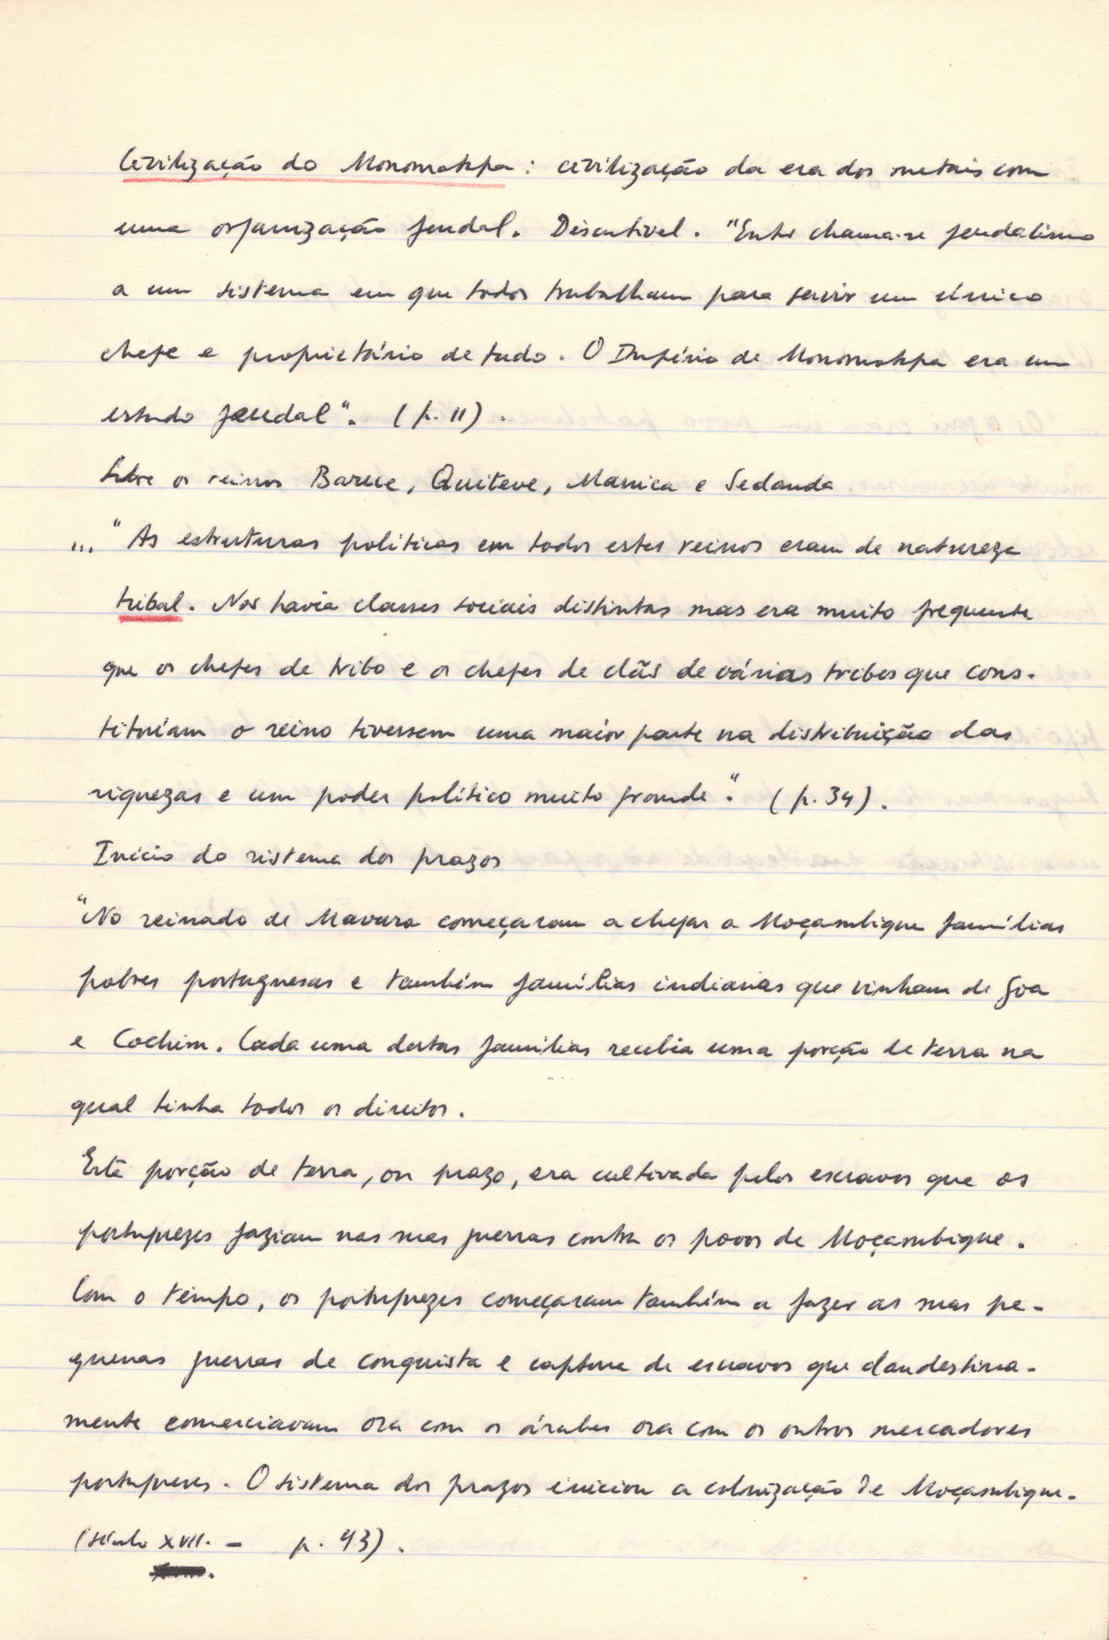 Civilização do Monomotapa: civilização da era dos metais com
uma organização feudal. Discutível. "Então chama-se feudalismo
a um sistema em que todos trabalham para servir um único
chefe e proprietário de tudo. O Império de Monomotapa era um
estado feudal". (p. 11).
Sobre os reinos Barue, Quiteve, Manica e Sedanda
... "As estruturas políticas em todos estes reinos eram de natureza
tribal. Não havia classes sociais distintas mas era muito frequente
que os chefes de tribo e os chefes de clãs de várias tribos que cons-
tituíam o reino tivessem uma maior parte na distribuição das
riquezas e um poder político muito grande". (p. 34).
Início do sistema dos prazos
"No reinado de Mavura começaram a chegar a Moçambique famílias
pobres portuguesas e também famílias indianas que vinham de Goa
e Cochim. Cada uma destas famílias recebia uma porção de terra na
qual tinha todos os direitos.
Esta porção de terra, ou prazo, era cultivada pelos escravos que os
portuguezes faziam nas suas guerras contra os povos de Moçambique.
Com o tempo, os portuguezes começaram também a fazer as suas pe-
quenas guerras de conquista e captura de escravos que clandestina-
mente comerciavam ora com os árabes ora com os outros mercadores
portugueses. O sistema dos prazos iniciou a colonização de Moçambique.
(século XVII. - p. 43).